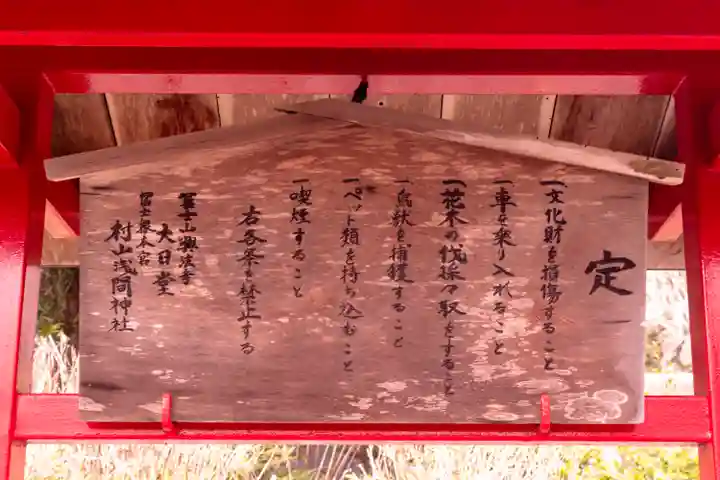 定
一文化財を損傷すること
一車を乗り入れること
一花木の伐採々取をすること
一鳥獣を捕獲すること
一ペット類を持ち込むこと
一喫煙すること
右各条を禁止する
冨士山興法寺
大日堂
冨士根本宮
村山浅間神社